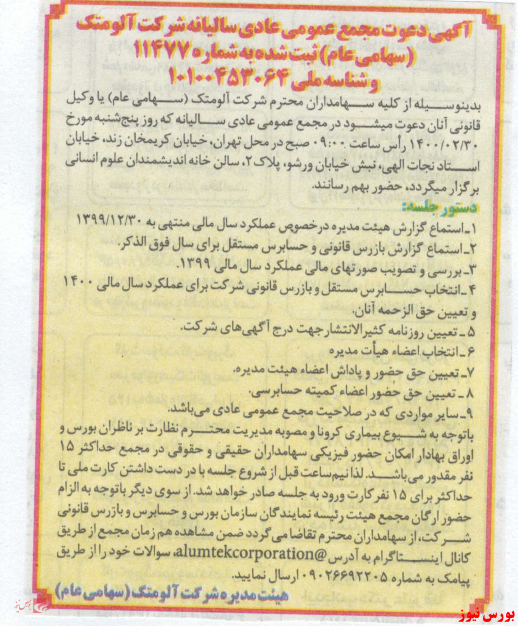 آگهی دعوت مجمع عمومی عادی سالیانه شرکت آلومتک
(سهامی عام) ثبت شده به شماره ۱۱۴۷۷
و شناسه ملی ۱۰۱۰۰۴۵۳۰۶۴
بدینوسیله از کلیه سهامداران محترم شرکت آلومتک (سهامی عام) یا وکیل
قانونی آنان دعوت میشود در مجمع عمومی عادی سالیانه که روز پنج‌شنبه مورخ
۱۴۰۰/۰۲/۳۰ رأس ساعت ۰۹:۰۰ صبح در محل تهران، خیابان کریمخان زند، خیابان
استاد نجات الهی، نبش خیابان ورشو، پلاک ۲، سالن خانه اندیشمندان علوم انسانی
برگزار میگردد، حضور بهم رسانند.
دستور جلسه:
۱ـ استماع گزارش هیئت مدیره درخصوص عملکرد سال مالی منتهی به ۱۳۹۹/۱۲/۳۰
۲ـ استماع گزارش بازرس قانونی و حسابرس مستقل برای سال فوق الذکر.
۳ـ بررسی و تصویب صورتهای مالی عملکرد سال مالی ۱۳۹۹.
۴ـ انتخاب حسابرس مستقل و بازرس قانونی شرکت برای عملکرد سال مالی ۱۴۰۰
و تعیین حق الزحمه آنان.
۵ ـ تعیین روزنامه کثیرالانتشار جهت درج آگهی‌های شرکت.
۶ ـ انتخاب اعضاء هیأت مدیره
۷ـ تعیین حق حضور و پاداش اعضاء هیئت مدیره.
۸ ـ تعیین حق حضور اعضاء کمیته حسابرسی.
۹ـ سایر مواردی که در صلاحیت مجمع عمومی عادی می‌باشد.
باتوجه به شیوع بیماری کرونا و مصوبه مدیریت محترم نظارت بر ناظران بورس و
اوراق بهادار امکان حضور فیزیکی سهامداران حقیقی و حقوقی در مجمع حداکثر ۱۵
نفر مقدور می‌باشد. لذا نیم‌ساعت قبل از شروع جلسه با در دست داشتن کارت ملی تا
حداکثر برای ۱۵ نفر کارت ورود به جلسه صادر خواهد شد. از سوی دیگر باتوجه به الزام
حضور ارگان مجمع هیئت رئیسه نمایندگان سازمان بورس و حسابرس و بازرس قانونی
شرکت، از سهامداران محترم تقاضا می‌گردد ضمن مشاهده هم زمان مجمع از طریق
کانال اینستاگرام به آدرس @alumtekcorporation، سوالات خود را از طریق
پیامک به شماره ۰۹۰۲۶۶۹۲۲۰۵ ارسال نمایید.
هیئت مدیره شرکت آلومتک (سهامی عام)
بورس نیوز